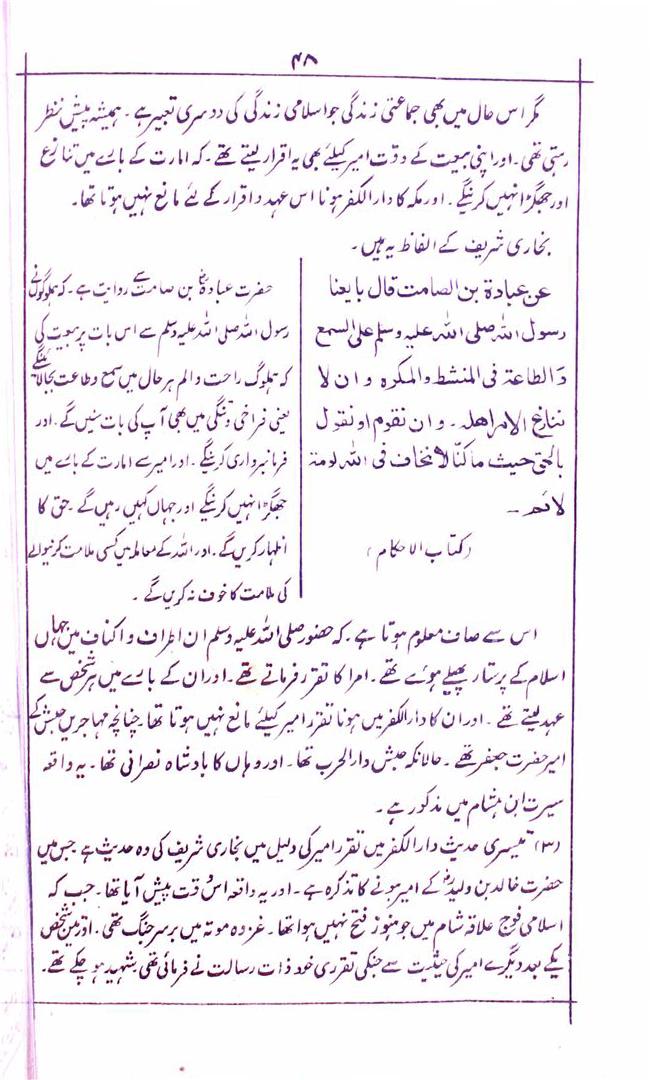 ۴۸
مگر اس حال میں بھی جماعتی زندگی جو اسلامی زندگی کی دوسری تعبیر ہے۔ ہمیشہ پیش نظر
رہتی تھی۔ اور اپنی بیعت کے وقت امیر کیلئے بھی یہ اقرار لیتے تھے۔ کہ امارت کے بارے میں تنازع
اور جھگڑا نہیں کرینگے۔ اور مکہ کا دار الکفر ہونا اس عہد و اقرار کے لئے مانع نہیں ہوتا تھا۔
بخاری شریف کے الفاظ یہ ہیں۔
عن عبادة بن الصامت قال بايعنا
رسول الله صلى الله عليه وسلم على السمع
والطاعة فى المنشط والمكره وان لا
ننازع الامر اهله۔ وان نقوم او نقول
بالحق حيث ما كنّا لا نخاف فى الله لومة
لائم۔
(کتاب الاحکام)
حضرت عبادہؓ بن صامت سے روایت ہے۔ کہ ہملوگوں نے
رسول اللہ صلی اللہ علیہ وسلم سے اس بات پر بیعت کی
کہ ہملوگ راحت و الم ہر حال میں سمع وطاعت بجالائینگے
یعنی فراخی وتنگی میں بھی آپ کی بات سنیں گے۔ اور
فرمانبرداری کرینگے۔ اور امیر سے امارت کے بارے میں
جھگڑا نہیں کرینگے اور جہاں کہیں رہیں گے۔ حق کا
اظہار کریں گے۔ اور اللہ کے معاملہ میں کسی ملامت کرنیوالے
کی ملامت کا خوف نہ کریں گے۔
اس سے صاف معلوم ہوتا ہے۔ کہ حضور صلی اللہ علیہ وسلم ان اطراف و اکناف میں جہاں
اسلام کے پرستار پھیلے ہوئے تھے۔ امرا کا تقرر فرماتے تھے۔ اور ان کے بارے میں ہر شخص سے
عہد لیتے تھے۔ اور ان کا دار الکفر میں ہونا تقرر امیر کیلئے مانع نہیں ہوتا تھا۔ چنانچہ مہاجرین حبش کے
امیر حضرت جعفر تھے۔ حالانکہ حبش دار الحرب تھا۔ اور وہاں کا بادشاہ نصرانی تھا۔ یہ واقعہ
سیرت ابن ہشام میں مذکور ہے۔
(۳) تیسری حدیث دار الکفر میں تقرر امیر کی دلیل میں بخاری شریف کی وہ حدیث ہے جس میں
حضرت خالد بن ولیدؓ کے امیر ہونے کا تذکرہ ہے۔ اور یہ واقعہ اس وقت پیش آیا تھا۔ جب کہ
اسلامی فوج علاقہ شام میں جو ہنوز فتح نہیں ہوا تھا۔ غزوہ موتہ میں برسر جنگ تھی۔ اور تین شخص
یکے بعد دیگرے امیر کی حیثیت سے جنکی تقرری خود ذات رسالت نے فرمائی تھی شہید ہو چکے تھے۔